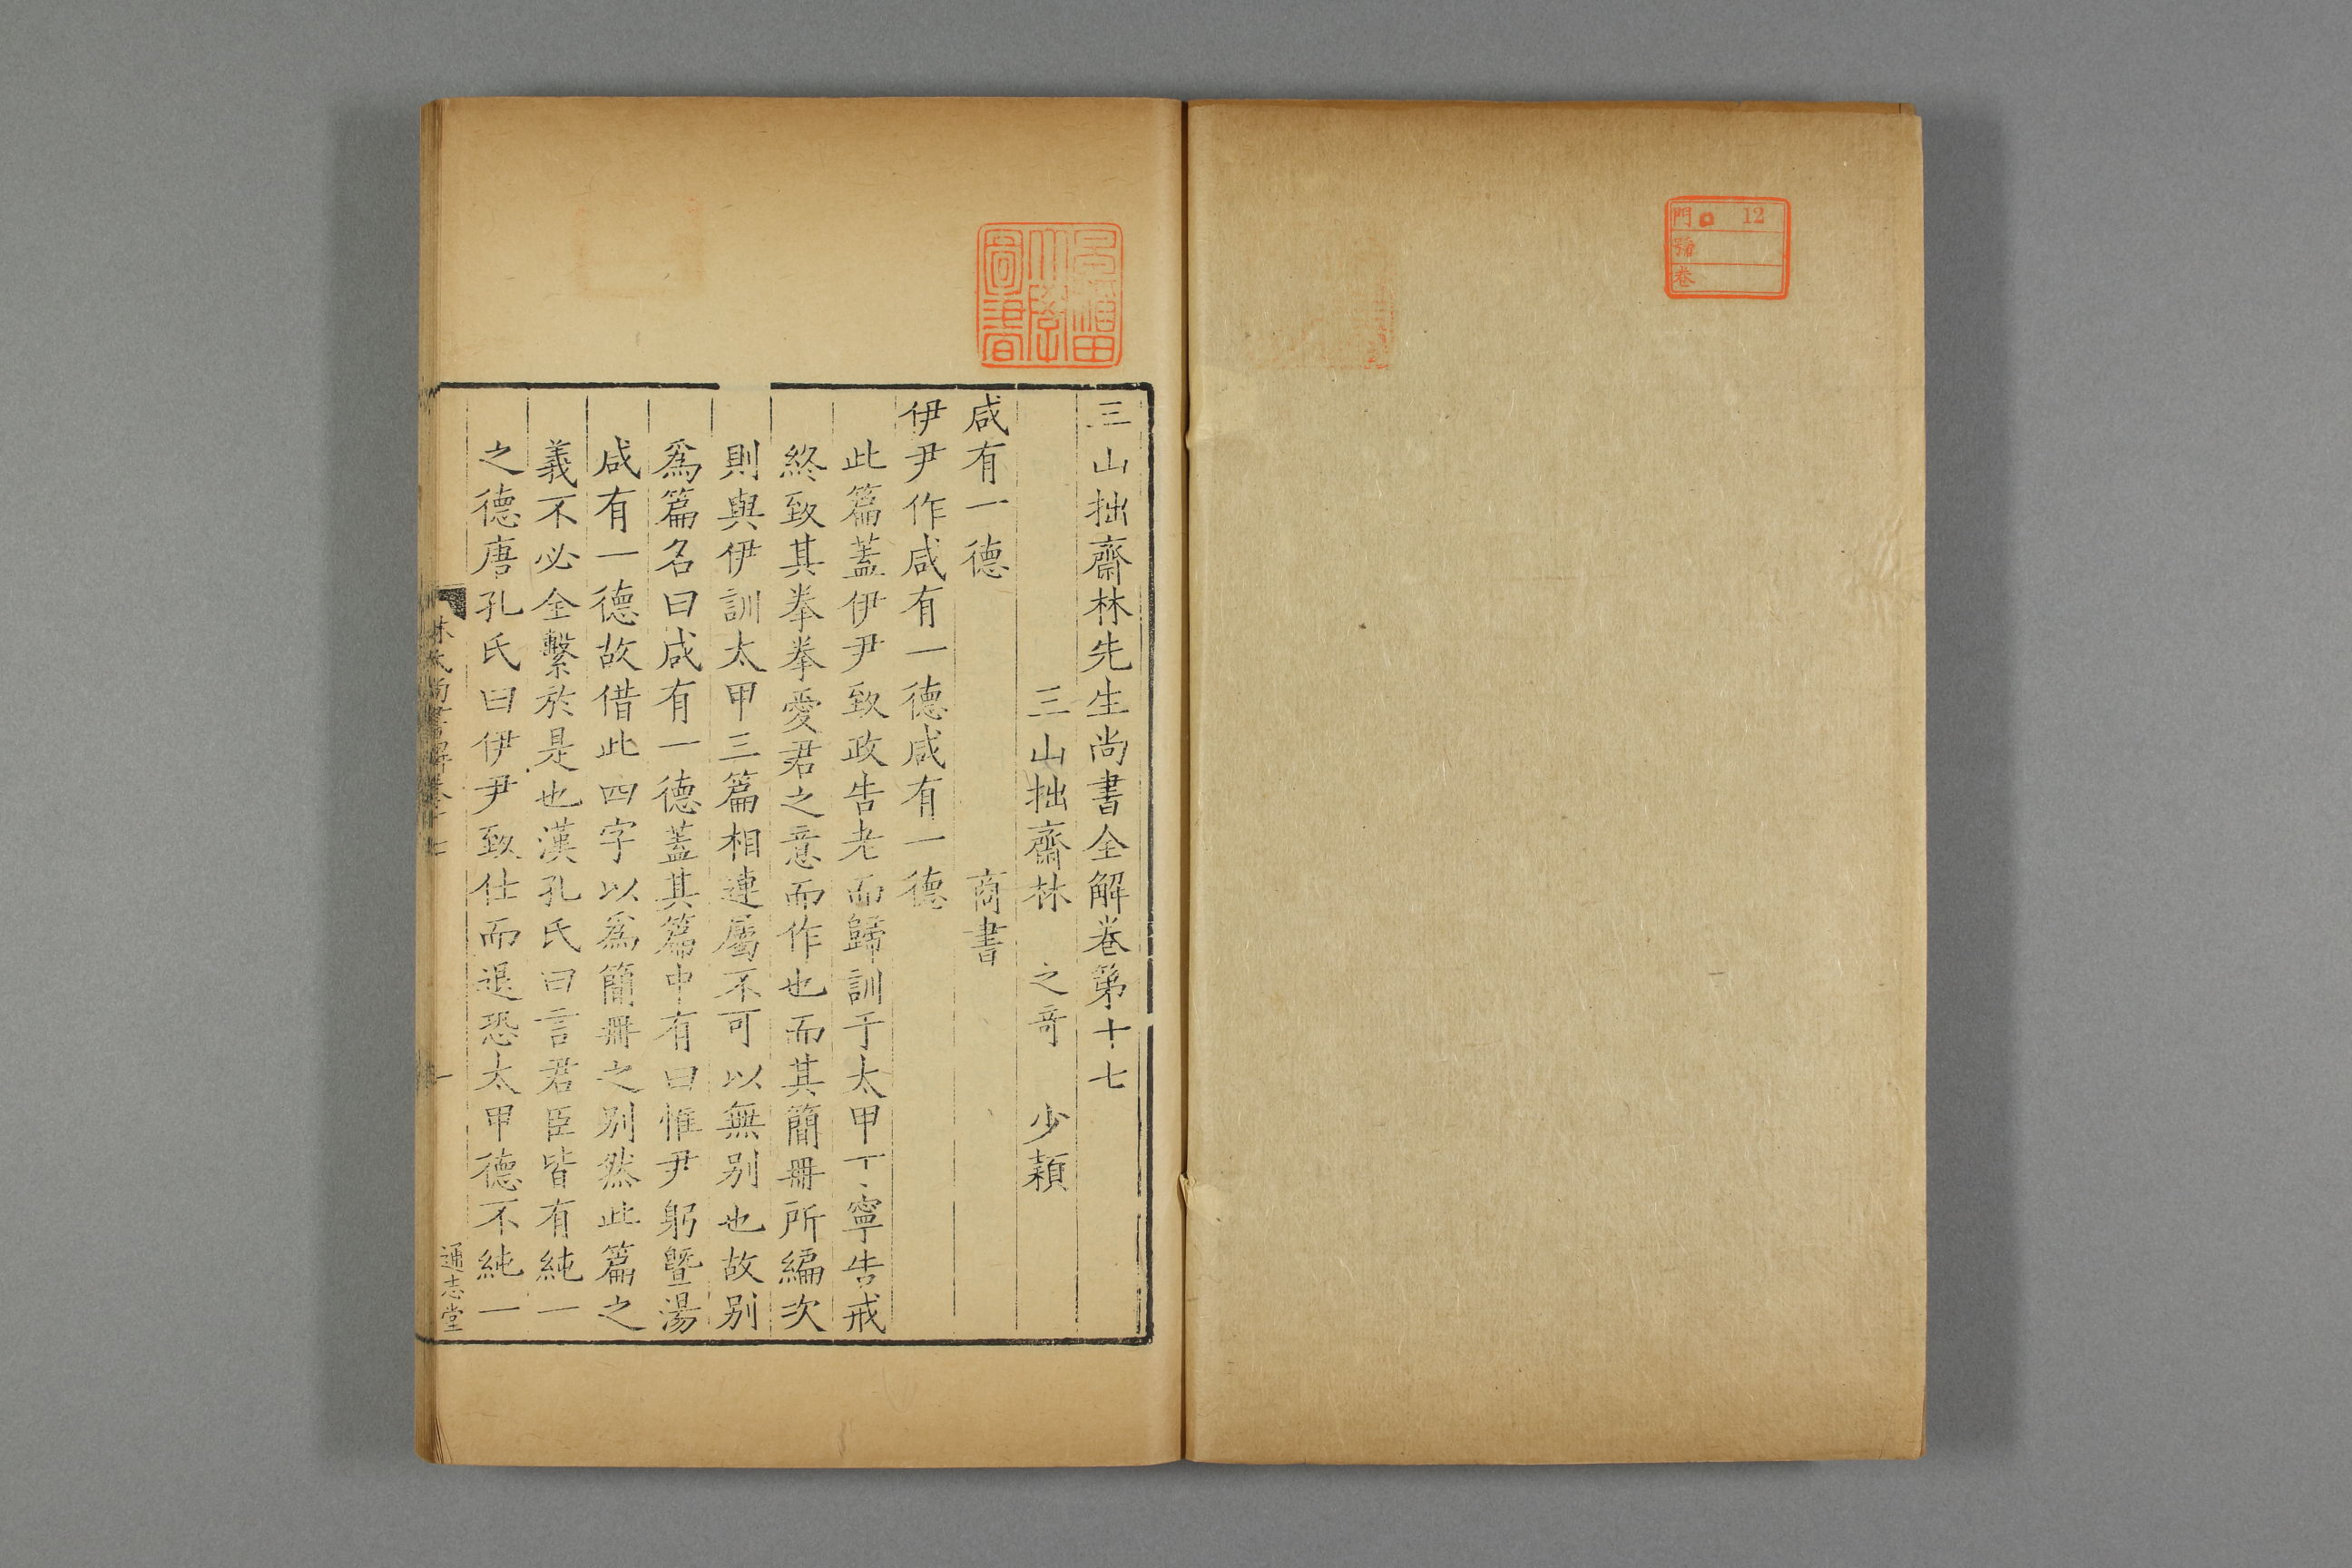 門 12
號
卷
三山拙齋林先生尚書全解卷第十七
三山拙齋林 之奇 少穎
咸有一德 商書
伊尹作咸有一德咸有一德
此篇蓋伊尹致政告老而歸訓于太甲丁寧告戒
終致其拳拳愛君之意而作也而其簡冊所編次
則與伊訓太甲三篇相連屬不可以無别也故别
爲篇名曰咸有一德蓋其篇中有曰惟尹躬曁湯
咸有一德故借此四字以爲簡冊之别然此篇之
義不必全繫於是也漢孔氏曰言君臣皆有純一
之德唐孔氏曰伊尹致仕而退恐太甲德不純一
林氏尚書解卷十七 一 通志堂